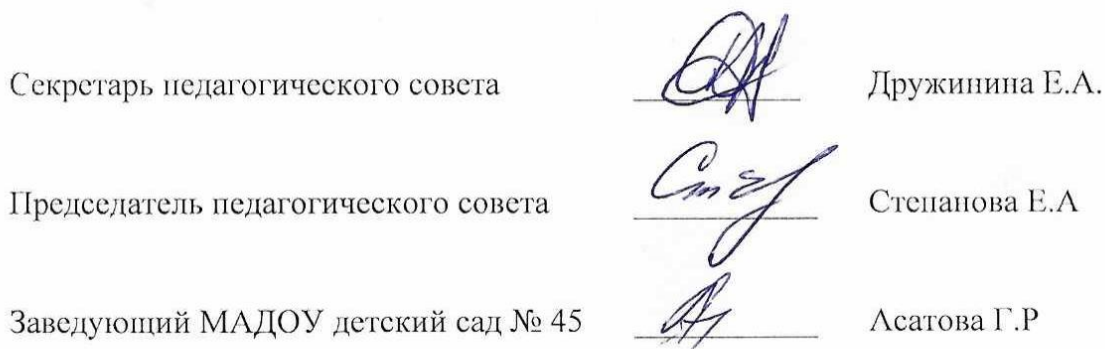 Секретарь педагогического совета Дружинина Е.А.
Председатель педагогического совета Степанова Е.А
Заведующий МАДОУ детский сад № 45 Асатова Г.Р